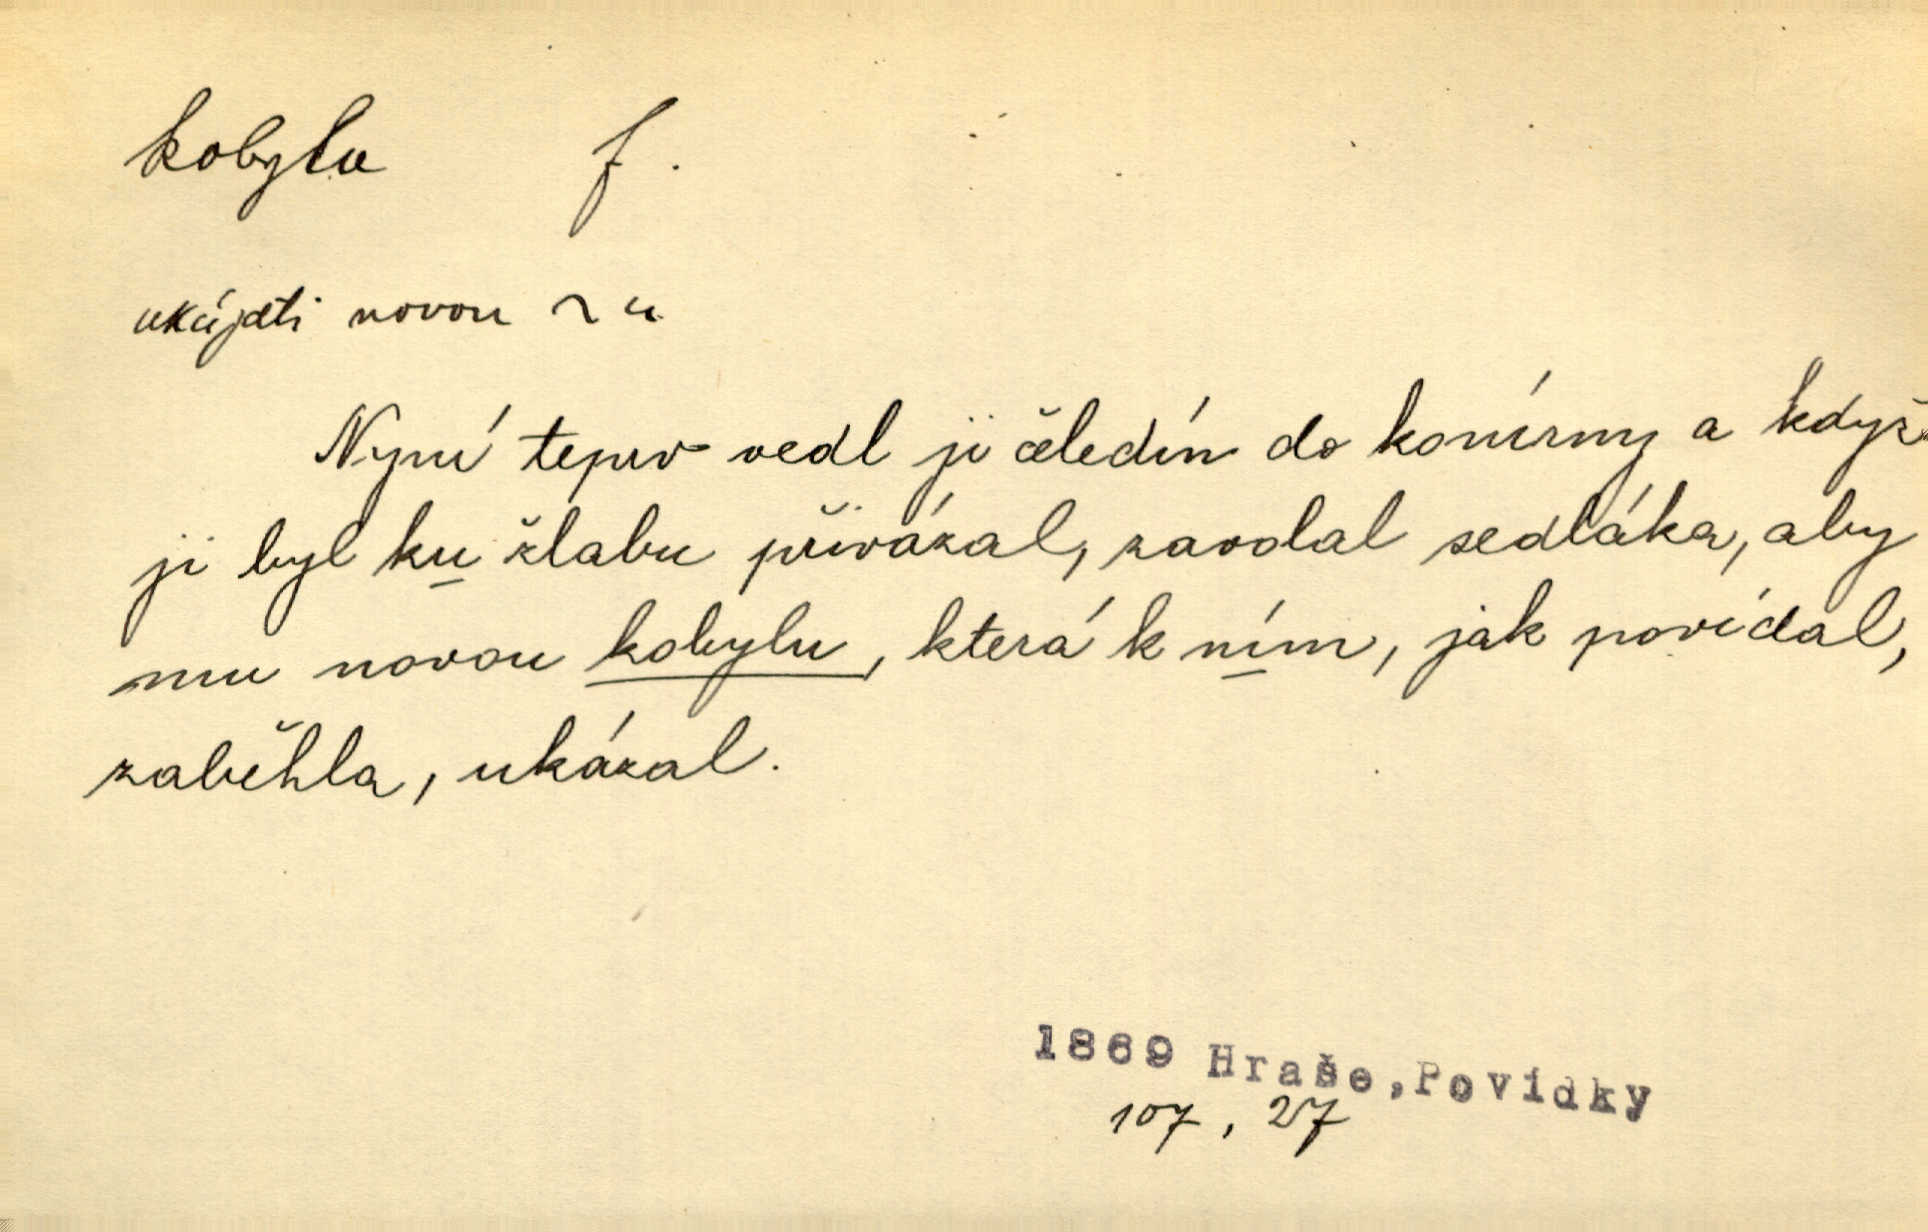 kobyla f.
ukázati novou ~ u
Nyní teprv vedl ji čeledín do konírny a když
ji byl ku žlabu přivázal, zavolal sedláka, aby
mu novou kobylu, která k ním, jak povídal,
zaběhla, ukázal.
1869 Hraše, Povídky
107, 27